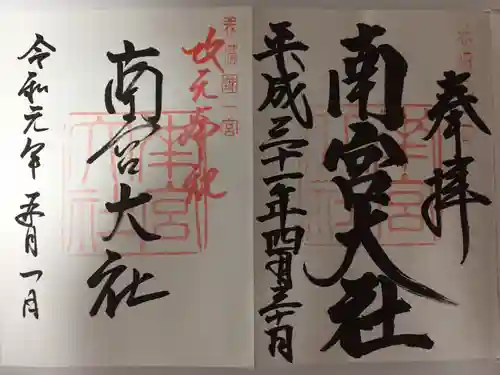 奉拝
南宮大社
平成三十一年四月三十日
美濃國一宮
改元奉祝
南宮大社
令和元年五月一日
南宮大社